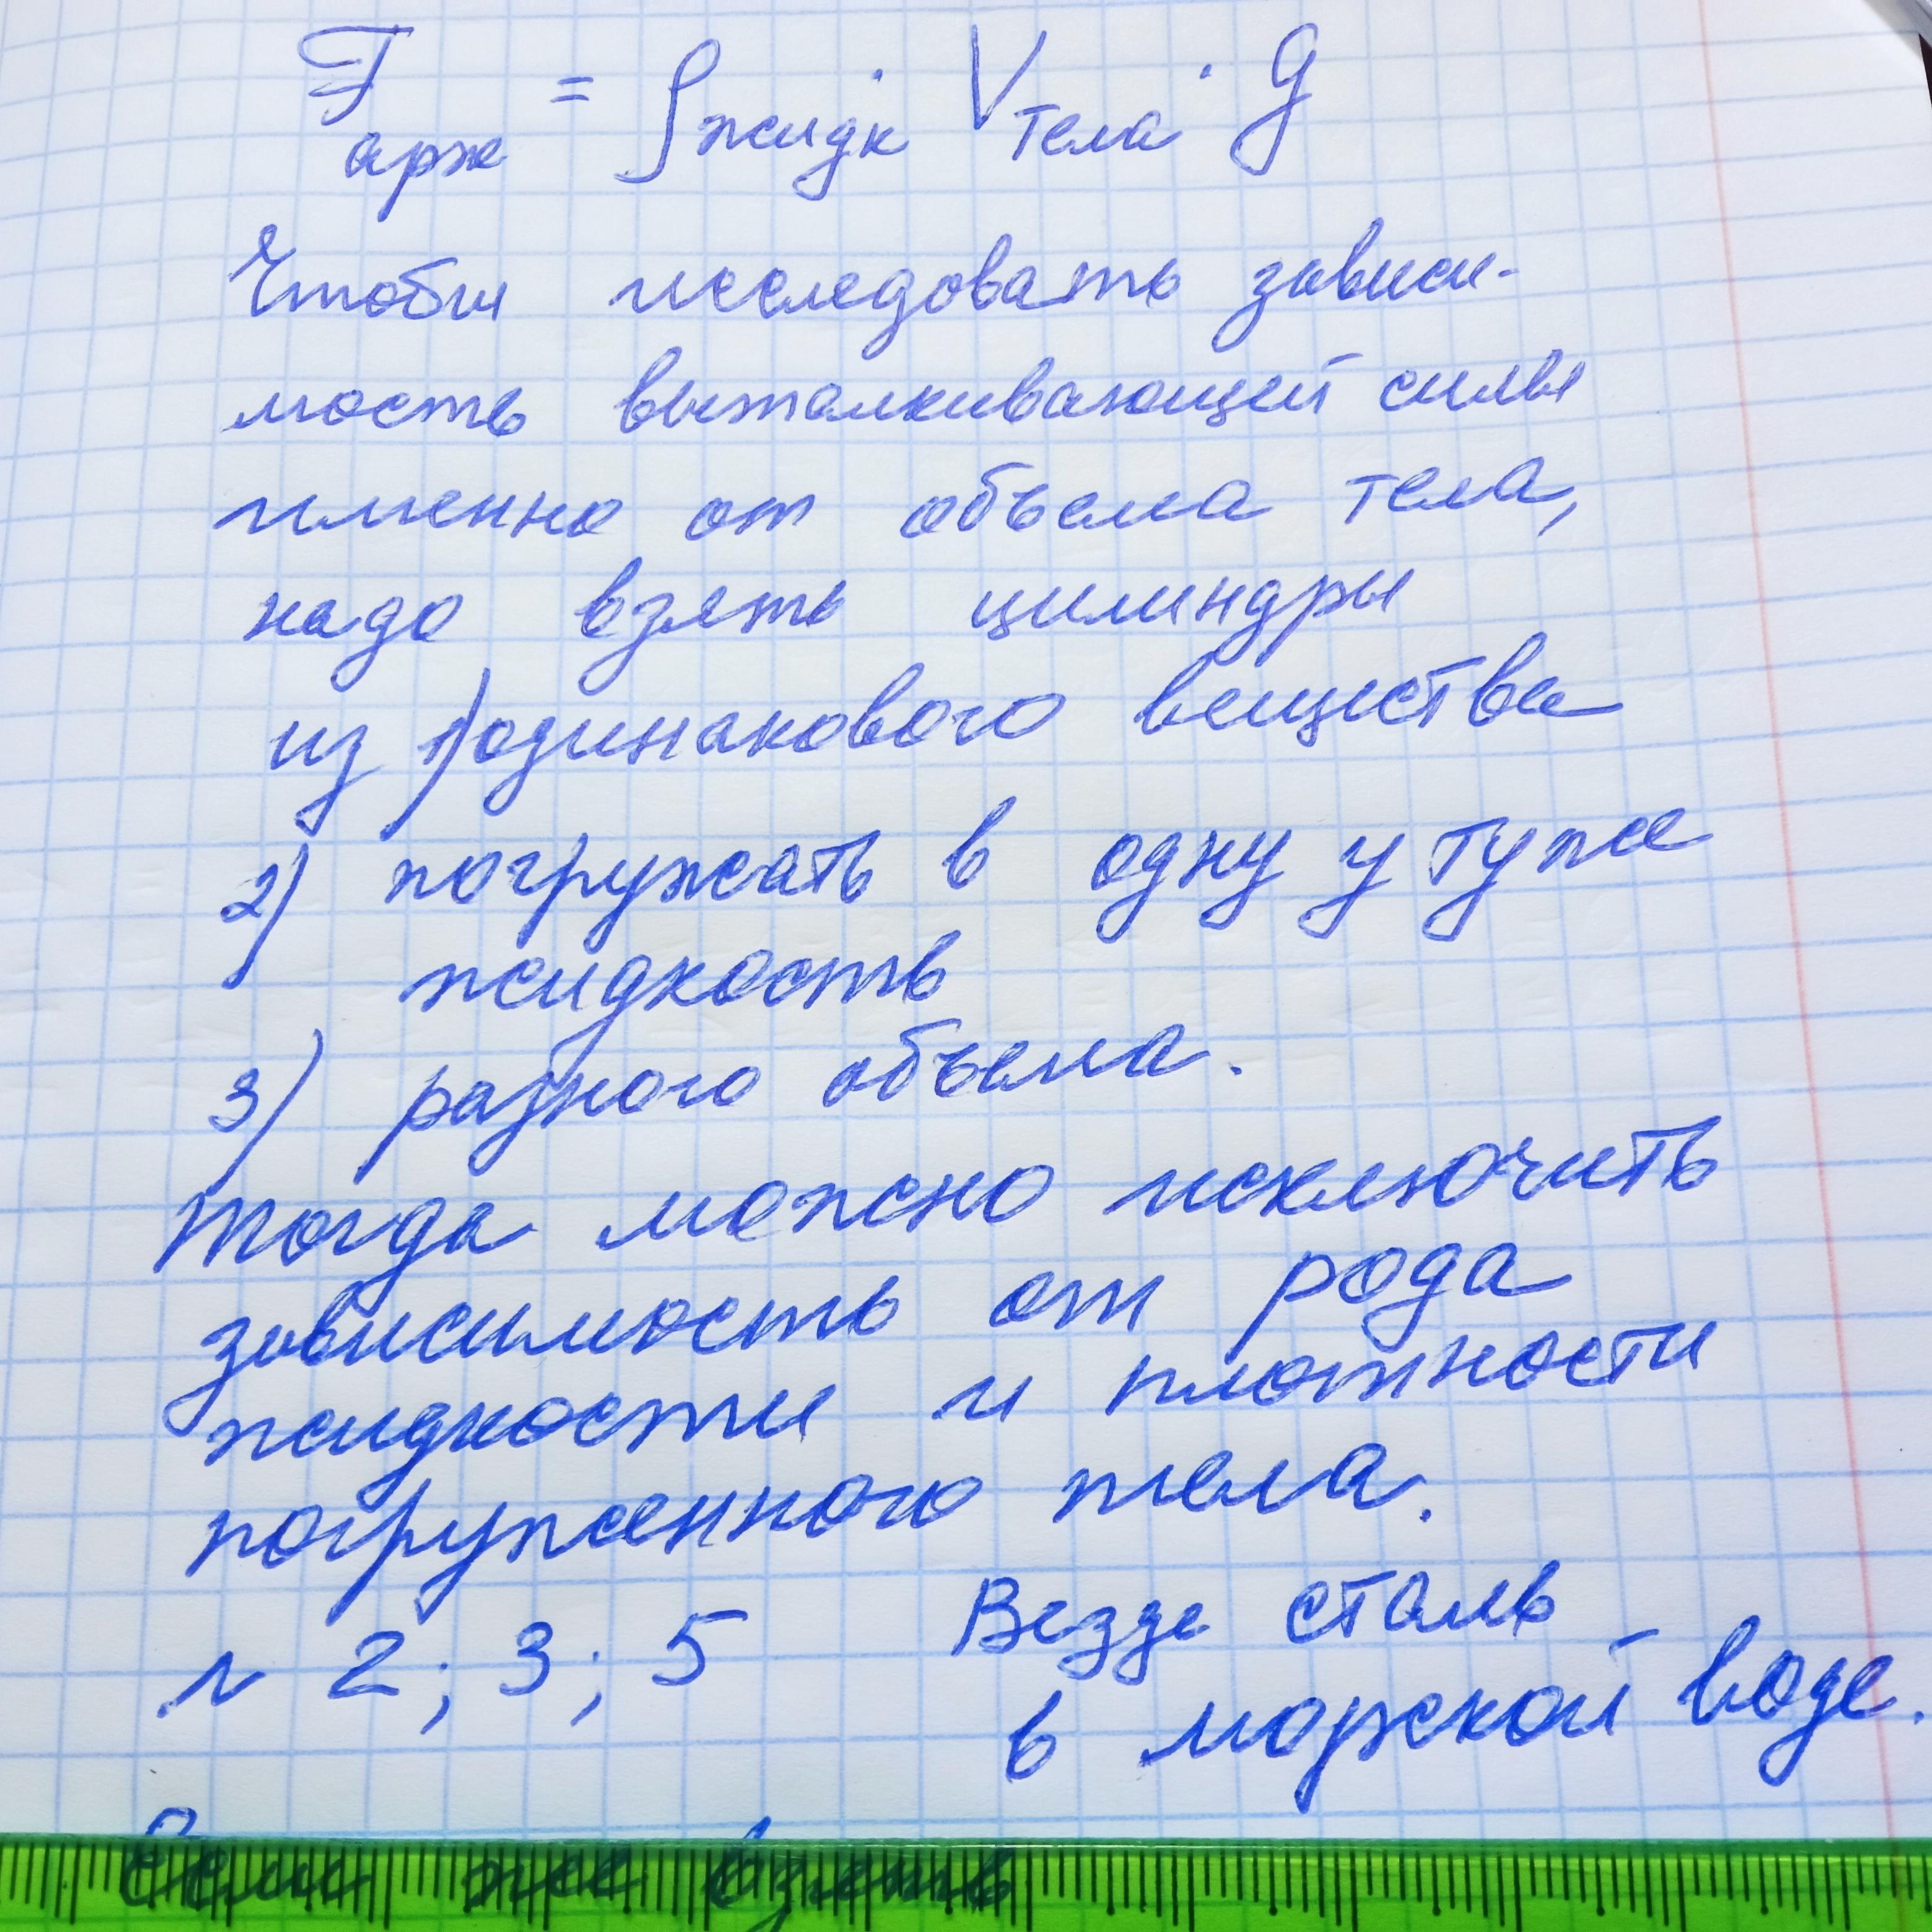 Fарж = ρжидк · Vтела · g
Чтобы исследовать зависи-
мость выталкивающей силы
именно от объема тела,
надо взять цилиндры
из 1) одинакового вещества
2) погружать в одну и ту же
жидкость
3) разного объема.
Тогда можно исключить
зависимость от рода
жидкости и плотности
погруженного тела.
N 2; 3; 5 Везде сталь
в морской воде.
Если же взять